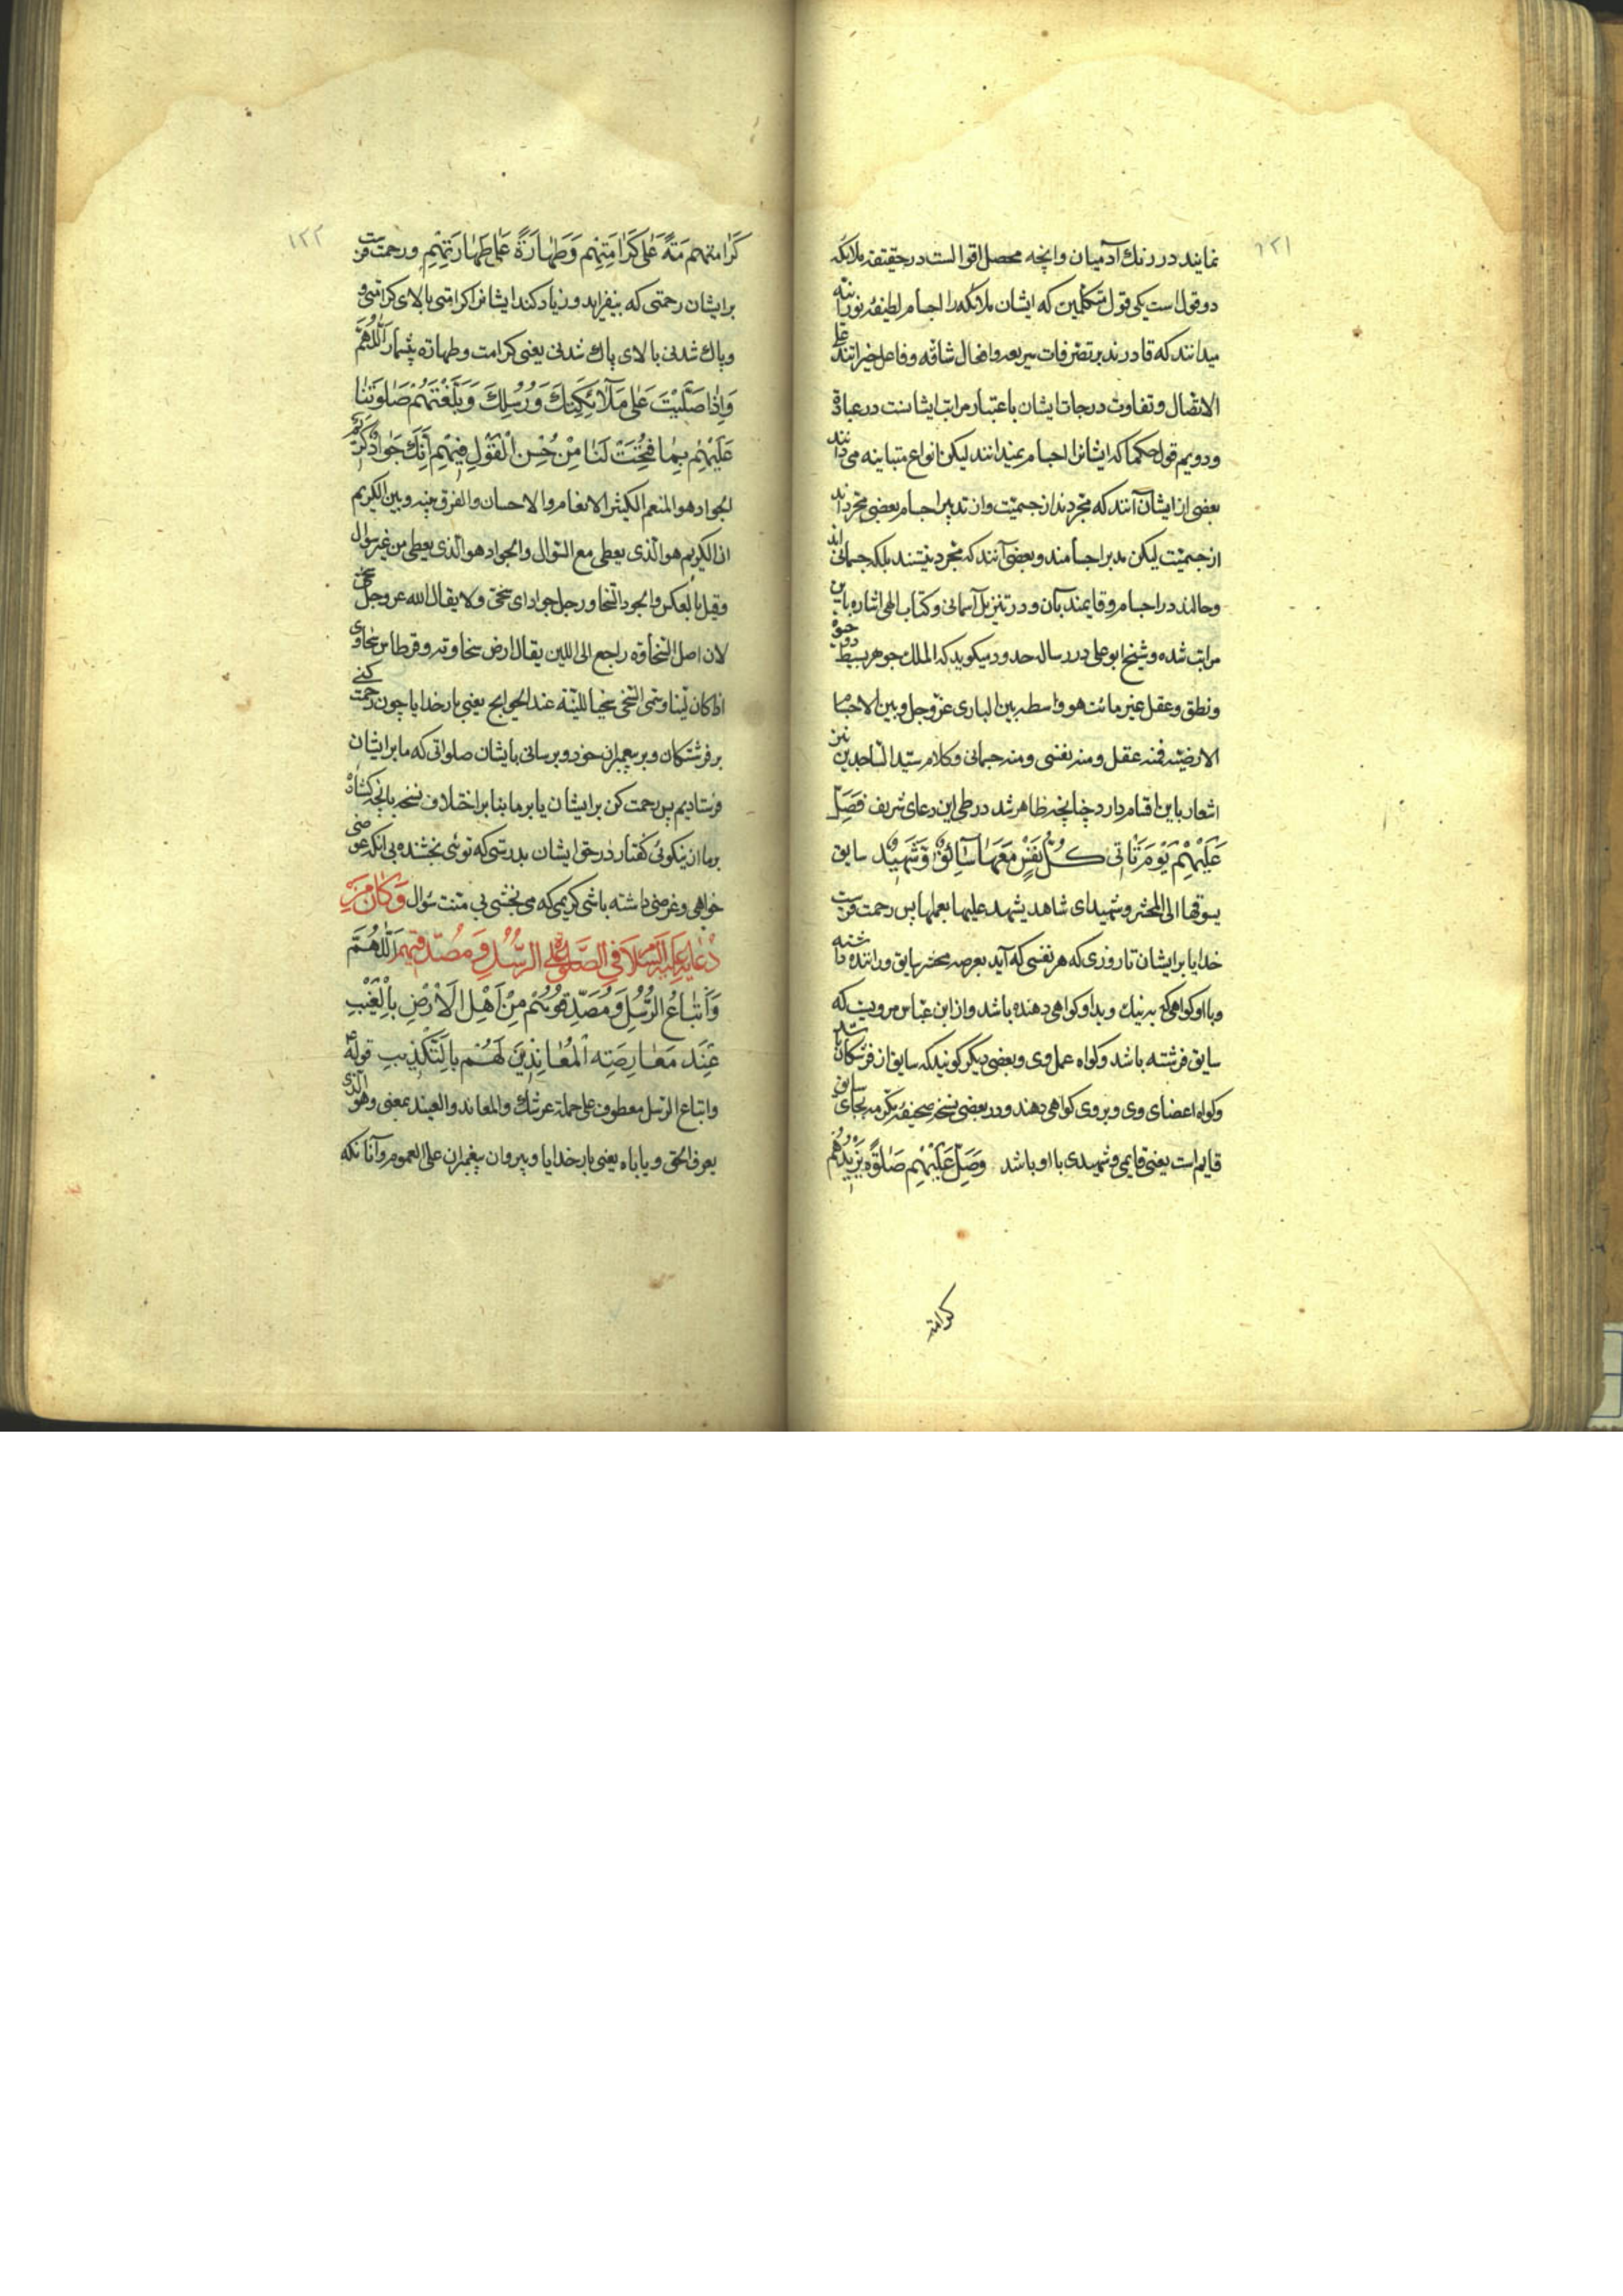 ۱۲۱
نمایند در رنك آدمیان وانچه محصل اقوالست در حقیقة ملائكه
دو قول است یكی قول متكلمین كه ایشان ملائكه را اجسام لطیفهٔ نورانیه
میدانند كه قادرند بر تصرفات سریعه و افعال شاقه و فاعل خیراتند علی
الاتصال و تفاوت درجات ایشان باعتبار مراتب ایشانست در عبادة
و دویم قول حكما كه ایشانرا اجسام نمیدانند لیكن انواع متباینه می دانند
بعضی از ایشان آنند كه مجردند از جسمیّت و از تدبیر اجسام بعضی مجردند
از جسمیّت لیكن مدبر اجسامند و بعضی آنند كه مجرد نیستند بلكه جسمانی اند
و حالند در اجسام و قایمند بآن و در تنزیل آسمانی و كتاب الهی اشاره باین
مراتب شده و شیخ ابو علی در رساله حدود میكوید كه الملك جوهر بسیط ذو حیوة
و نطق و عقل غیر مائت هو واسطه بین الباری عزّ وجل و بین الاجسام
الارضیّه فمنه عقلی و منه نفسی و منه جسمانی و كلام سیّد الساجدین نیز
اشعار باین اقسام دارد چنانچه ظاهر شد در طی این دعای شریف فَصَلِّ
عَلَیْهِمْ یَوْمَ تَاْتی كُلُّ نَفْسٍ مَعَهَا سَآئِقٌ وَشَهِیْدٌ سایق
یسوقها الی المحشر و شهید ای شاهد یشهد علیها بعملها پس رحمت فرست
خدایا بر ایشان تا روزی كه هر نفسی كه آید بعرصه محشر سایق و راننده داشته
و با او كواهی كه به نیك و بد او كواهی دهنده باشد و از ابن عباس مرویست كه
سایق فرشته باشد و كواه عمل وی و بعضی دیكر كویند كه سایق از فرشتكان باشد
و كواه اعضای وی و بر وی كواهی دهند و در بعضی نسخ صحیفهٔ مكرمه بجای سایق
قایم است یعنی قایمی و شهیدی با او باشد وَصَلِّ عَلَیْهِمْ صَلٰوةً یَزِیْدُهُمْ
كرامة
۱۲۲
كَرَامَةً عَلٰی كَرَامَتِهِمْ وَطَهَارَةً عَلٰی طَهَارَتِهِمْ و رحمت فرست
بر ایشان رحمتی كه بیفزاید و زیاد كند ایشانرا كرامتی بالای كرامتی و
و پاك شدنی بالای پاك شدنی یعنی كرامت و طهارة بیشمار اَللّٰهُمَّ
وَاِذَا صَلَّیْتَ عَلٰی مَلَآئِكَتِكَ وَرُسُلِكَ وَبَلَّغْتَهُمْ صَلٰوتَنَا
عَلَیْهِمْ بِمَا فَتَحْتَ لَنَا مِنْ حُسْنِ الْقَوْلِ فِیْهِمْ اِنَّكَ جَوَادٌ كَرِیْمٌ
الجواد هو المنعم الكثیر الانعام و الاحسان و الفرق بینه و بین الكریم
ان الكریم هو الّذی یعطی مع السّوال و الجواد هو الّذی یعطی من غیر سوال
و قیل بالعكس و الجود السّخا و رجل جواد ای سخیّ و لا یقال الله عز وجل سخی
لان اصل السّخاوة راجع الی اللین یقال ارض سخاویه و قرطاس سخاوی
اذا كان لیّنا و سمّی السّخی سخیا للینه عند الحوایج یعنی بار خدایا چون رحمت كنی
بر فرشتكان و بر پیغمبران خود و برسانی بایشان صلواتی كه ما بر ایشان
فرستادیم پس رحمت كن بر ایشان یا بر ما بنابر اختلاف نسخه بانچه كشاده
بر ما از نیكوئی كفتار در حق ایشان بدرستی كه توئی بخشنده بی انكه عوضی
خواهی و غرضی داشته باشی كریمی كه می بخشی بی منت سُوال وَكَانَ مِنْ
دُعَآئِهِ عَلَیْهِ السَّلَام فِی الصَّلٰوةِ عَلَی الرُّسُلِ وَمُصَدِّقِیْهِمْ اَللّٰهُمَّ
وَاَتْبَاعُ الرُّسُلِ وَمُصَدِّقُوهُمْ مِنْ اَهْلِ الْاَرْضِ بِالْغَیْبِ
عِنْدَ مَعَارِضَةِ الْمُعَانِدِیْنَ لَهُمْ بِالتَّكْذِیبِ قوله
و اتباع الرّسل معطوف علی حملة عرشك و المعاند و العنید بمعنی و هو الّذی
یعرف الحق و یاباه یعنی بار خدایا و پیروان پیغمبران علی العموم و آنانكه